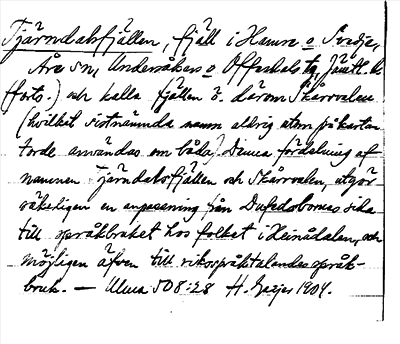 Tjärndalsfjällen, fjäll i Hamre o Svedje,
Åre sn, Undersåkers o Offerdals tg, Jämtl. l.
(forts.) och kalla fjällen Ö. därom Skårvalen
(hvilket sistnämnda namn aldrig utom på kartan
torde användas om båda). Denna fördelning af
namnen Tjärndalsfjällen och Skårvalen, utgör
säkerligen en anpassning från Dufedsbornas sida
till språkbruket hos folket i Heinådalen, och
möjligen äfven till riksspråktalandes språk-
bruk. — Ullma 508:28 H. Geijer 1904.